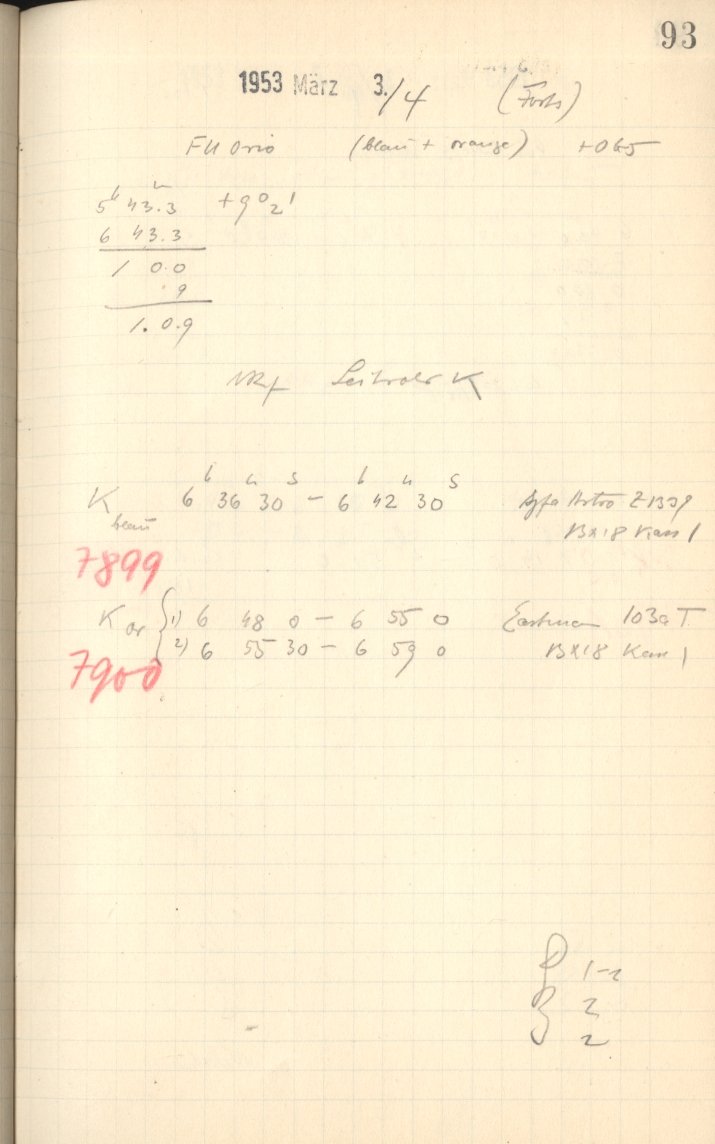 93
1953 März 3./4 (Forts)
FU Orio (blau + orange)
5h 43.3 + 9° 2'
6 43.3
1 0.0
.9
1.0.9
K
h m s h m s
K blau 6 36 30 – 6 42 30 Agfa Astro
BX18 Kass 1
7899
K or { 1) 6 48 0 – 6 55 0 Eastman 103a T
2) 6 55 30 – 6 59 0 BX18 Kass 1
7900
1-2
2
2